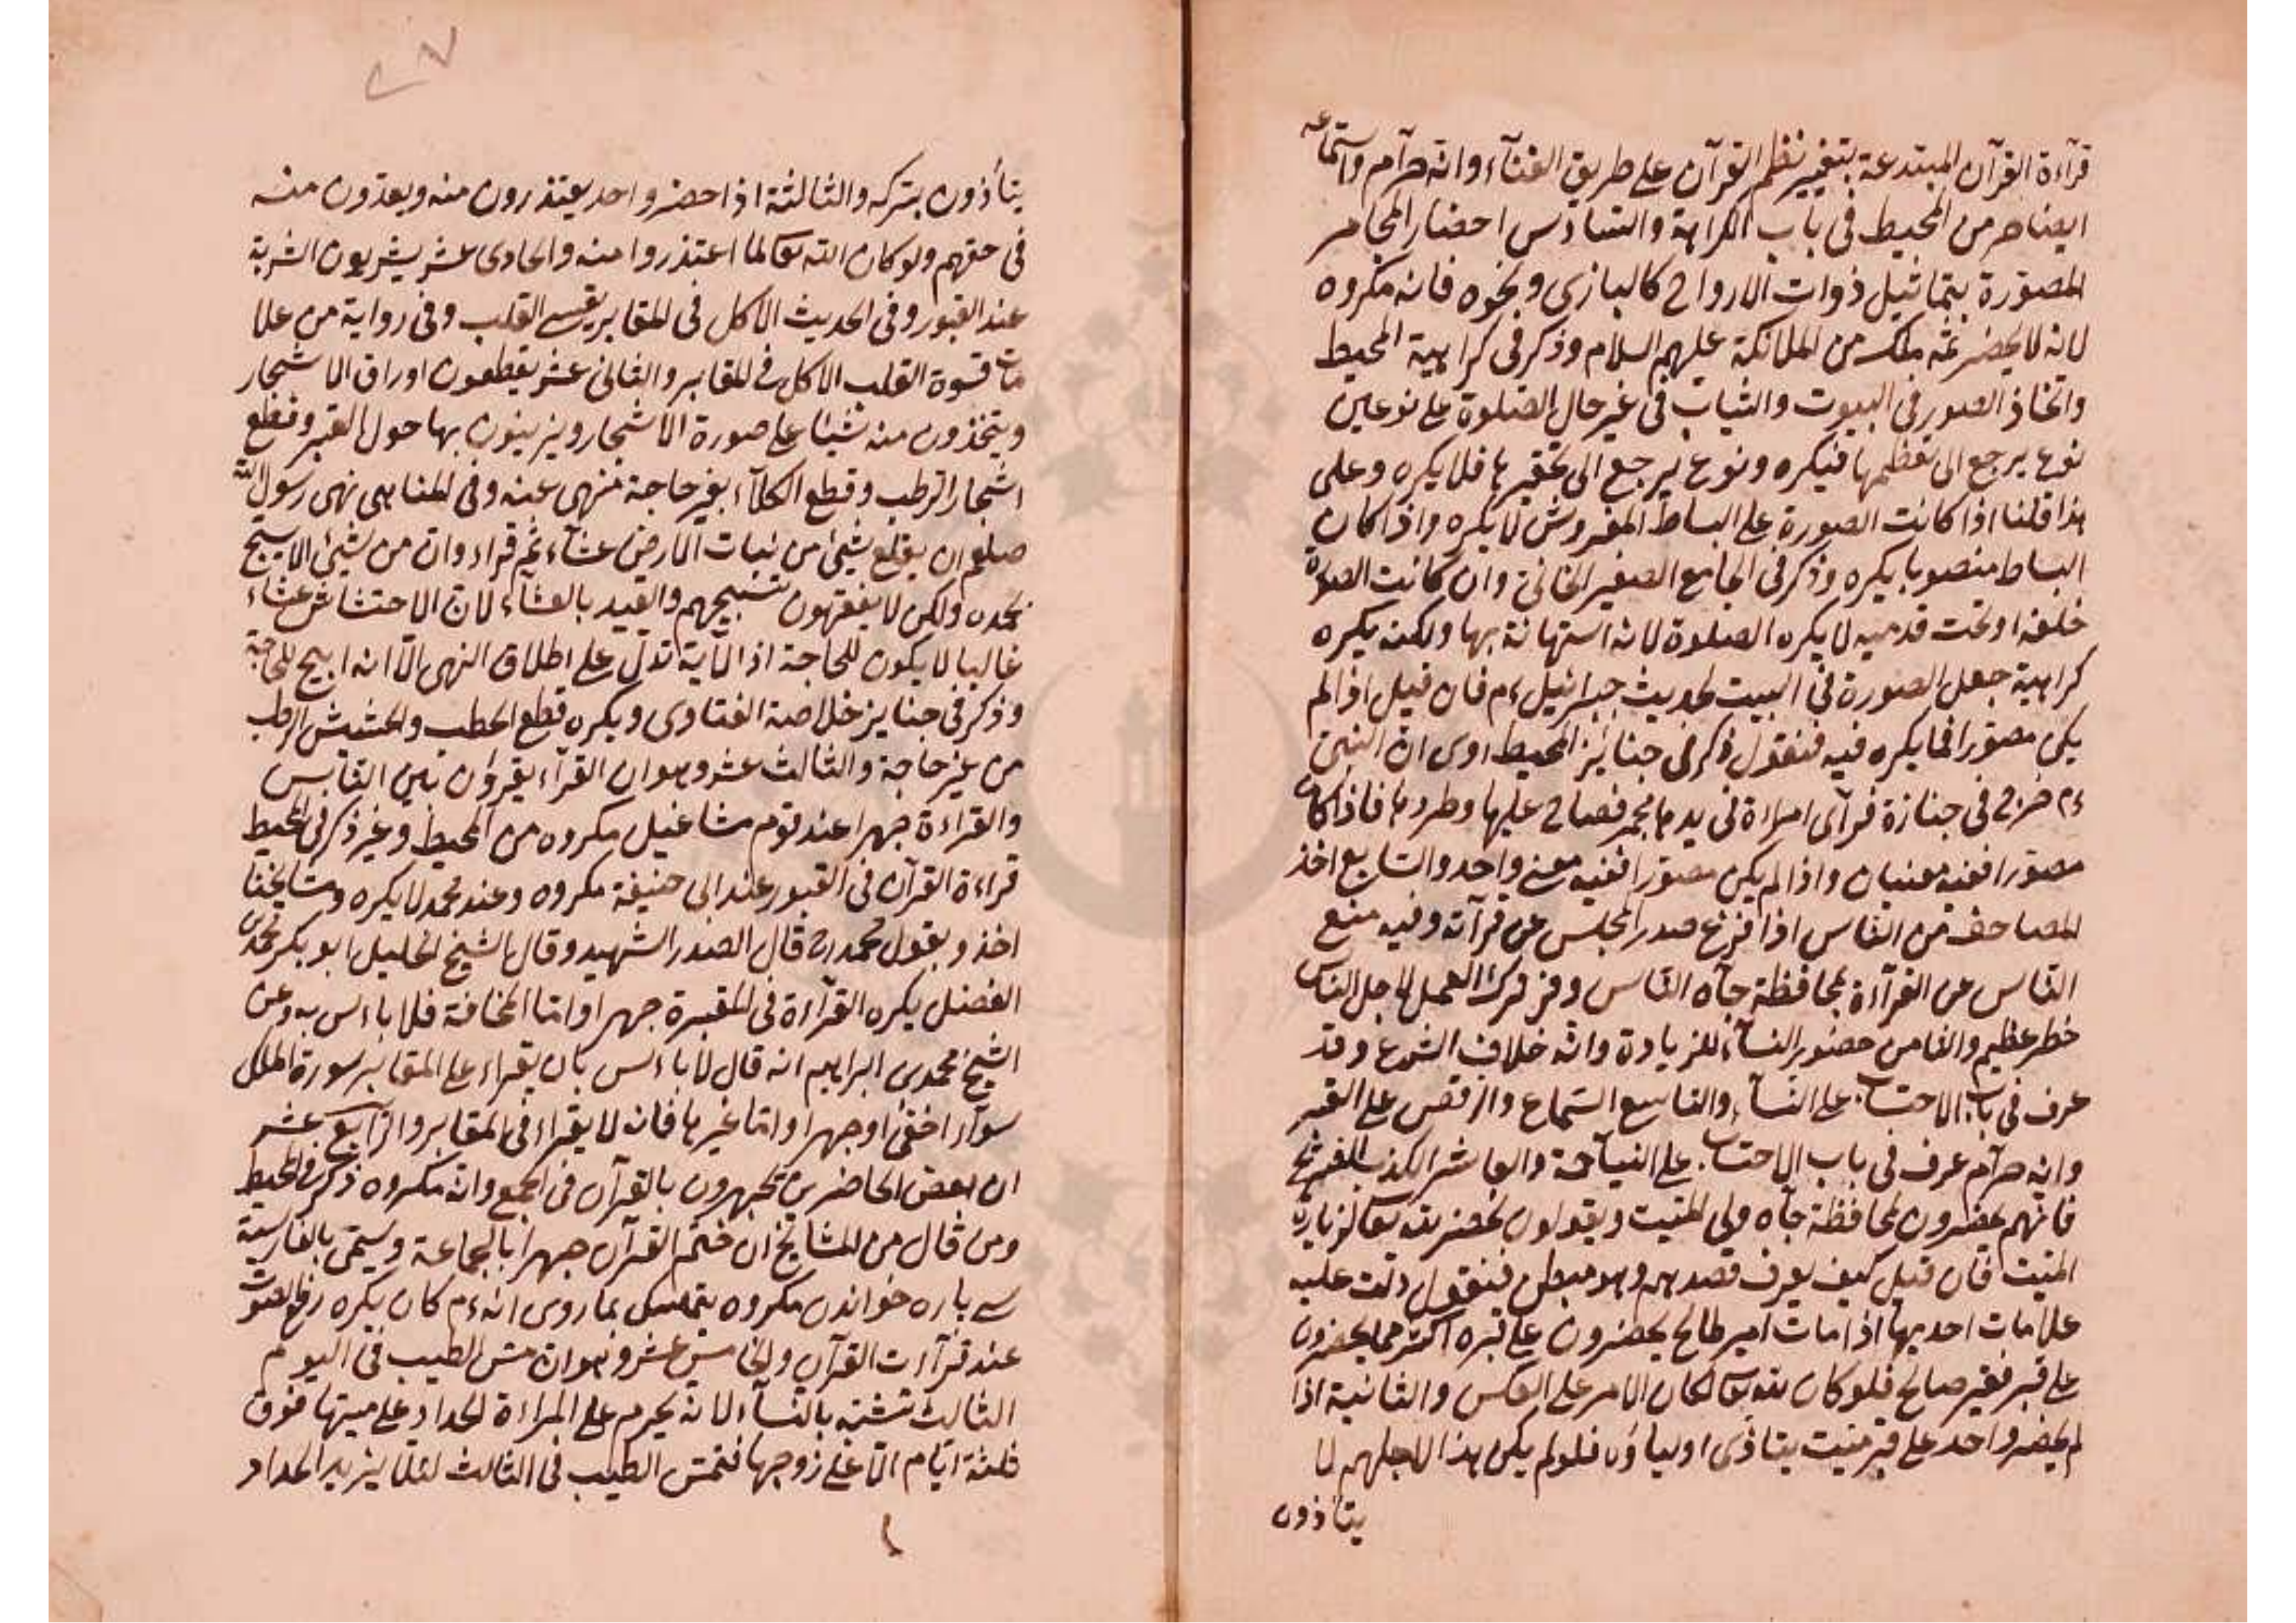 قرآءة القرآن المبتدعة بتغيير نظم القرآن على طريق الغنآء وانه حرآم واستماعه
ايضا من المحيط في باب الكراهة والسادس احضار المجامر
المصورة بتماثيل ذوات الارواح كالبازى ونحوه فانه مكروه
لانه لا يحضر ثمه ملك من الملائكة عليهم السلام وذكر في كراهية المحيط
واتخاذ الصور في البيوت والثياب في غير حال الصلوة على نوعين
نوع يرجع الى تعظيمها فيكره ونوع يرجع الى تحقيرها فلا يكره وعلى
هذا قلنا اذا كانت الصورة على البساط المفروش لا يكره واذا كان
البساط منصوبا يكره وذكر في الجامع الصغير الخانى وان كانت الصورة
خلفه او تحت قدميه لا يكره الصلوة لانه استهانة بها ولكنه يكره
كراهية جعل الصورة في البيت لحديث جبرائيل ءم فان قيل اذا لم
يكن مصورا فما يكره فيه فنقول ذكر في جنايز المحيط روى ان النبى
ءم خرج في جنازة فرآى امراة في يدها مجمر فصاح عليها وطردها فاذا كان
مصورا ففيه معنيان واذا لم يكن مصورا ففيه معنى واحد والسابع اخذ
المصاحف من الناس اذا فرغ صدر المجلس عن قرآته وفيه منع
الناس عن القرآءة لمحافظة جآه الناس وفي ترك العمل لاجل الناس
خطر عظيم والثامن حضور النسآء للزيادة وانه خلاف الشرع وقد
عرف في باب الاحتساب على النسآء والتاسع السماع والرقص على القبر
وانه حرآم عرف في باب الاحتساب على النياحة والعاشر الكذب
فانهم يحضرون لمحافظة جآه ولى الميت ويقولون نحضر لله تعا لزيارة
الميت فان قيل كيف يعرف قصدهم وهو مبطن فنقول دلت عليه
علامات احديها اذا مات امير طالح يحضرون على قبره اكثر مما يحضرون
على قبر فقير صالح فلو كان لله تعا لكان الامر على العكس والثانية اذا
لم يحضر واحد على قبر ميت يتاذى اولياؤه فلو لم يكن هذا لاجلهم لا
يتاذون
٢٧
يتأذون بتركه والثالثة اذا حضر واحد يعتذرون منه ويعدون منه
في حقهم ولو كان لله تعا لما اعتذروا منه والحادى عشر يشربون الشربة
عند القبور وفي الحديث الاكل في المقابر يقسى القلب وفي رواية من علا
مات قسوة القلب الاكل في المقابر والثانى عشر يقطعون اوراق الاشجار
ويتخذون منه شيئا على صورة الاشجار ويزينون بها حول القبر وقطع
اشجار الرطب وقطع الكلآء بغير حاجة منهى عنه وفي المناهى نهى رسول الله
صلعم ان يقلع شيئ من نبات الارض عشآء ثم قراء وان من شيئ الا يسبح
بحمده ولكن لا يفقهون تسبيحهم والقيد بالعشآء لان الاحتشاش عشاء
غالبا لا يكون للحاجة اذ الآية تدل على اطلاق النهى الا انه ابيح للحاجة
وذكر في جنايز خلاصة الفتاوى ويكره قطع الحطب والحشيش الرطب
من غير حاجة والثالث عشر وهو ان القرآء يقرؤن بين الناس
والقراءة جهرا عند قوم مشاغيل مكروه من المحيط وغير ذكر في المحيط
قراءة القرآن في القبور عند ابى حنيفة مكروه وعند محمد لا يكره ومشايخنا
اخذو بقول محمد رح قال الصدر الشهيد وقال الشيخ الجليل ابو بكر محمد بن
الفضل يكره القرآءة في المقبرة جهرا واما المخافتة فلا باس به وعن
الشيخ محمد بن ابراهيم انه قال لا باءس بان يقراء على المقابر سورة الملك
سوآء اخفى او جهرا واما غيرها فانه لا يقراء في المقابر والرابع عشر
ان بعض الحاضرين يجهرون بالقرآن في الجمع وانه مكروه ذكر في المحيط
ومن قال من المشايخ ان ختم القرآن جهرا بالجماعة ويسمى بالفارسية
سى پاره خواندن مكروه يتمسك بما روى انه ءم كان يكره رفع الصوت
عند قرآءت القرآن والخامس عشر وهو ان مس الطيب في اليوم
الثالث تشبه بالنسآء لانه يحرم على المراءة الحداد على ميتها فوق
ثلثة ايام الا على زوجها فتمس الطيب في الثالث لئلا يزيد الحداد